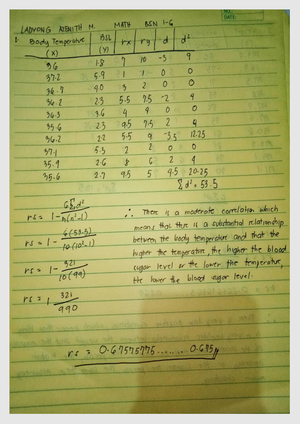 LADYONG KIEHITH M. MATH BSN 1-G
1. Body Temperature BSL rx ry d d²
(X) (Y)
36 1.8 7 10 -3 9
37.2 5.9 1 1 0 0
36.7 4.0 3 2 0 0
36.2 2.3 5.5 7.5 -2 4
36.3 3.6 4 4 0 0
35.6 2.3 9.5 7.5 2 4
36.2 2.2 5.5 9 -3.5 12.25
37.1 5.3 2 2 0 0
35.9 2.6 8 6 2 4
35.6 2.7 9.5 5 4.5 20.25
Σd² = 53.5
rs = 1 - 6Σd² / n(n²-1)
rs = 1 - 6(53.5) / 10(10²-1)
rs = 1 - 321 / 10(99)
rs = 1 - 321 / 990
∴ There is a moderate correlation which
means that there is a substantial relationship
between the body temperature and that the
higher the temperature, the higher the blood
sugar level or the lower the temperature,
the lower the blood sugar level.
rs = 0.67575775........ 0.675